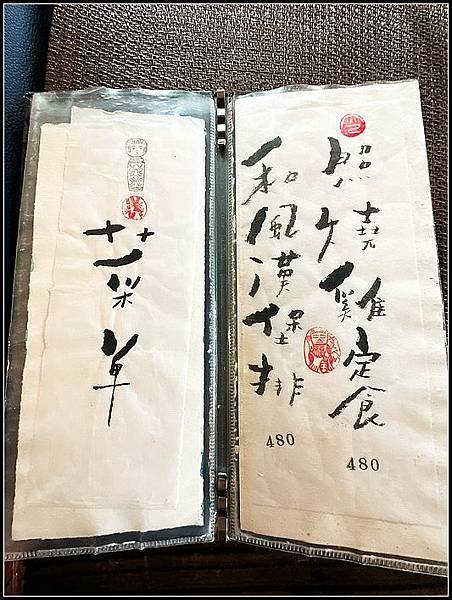 菜单
照燒雞定食
480
和風漢堡排
480